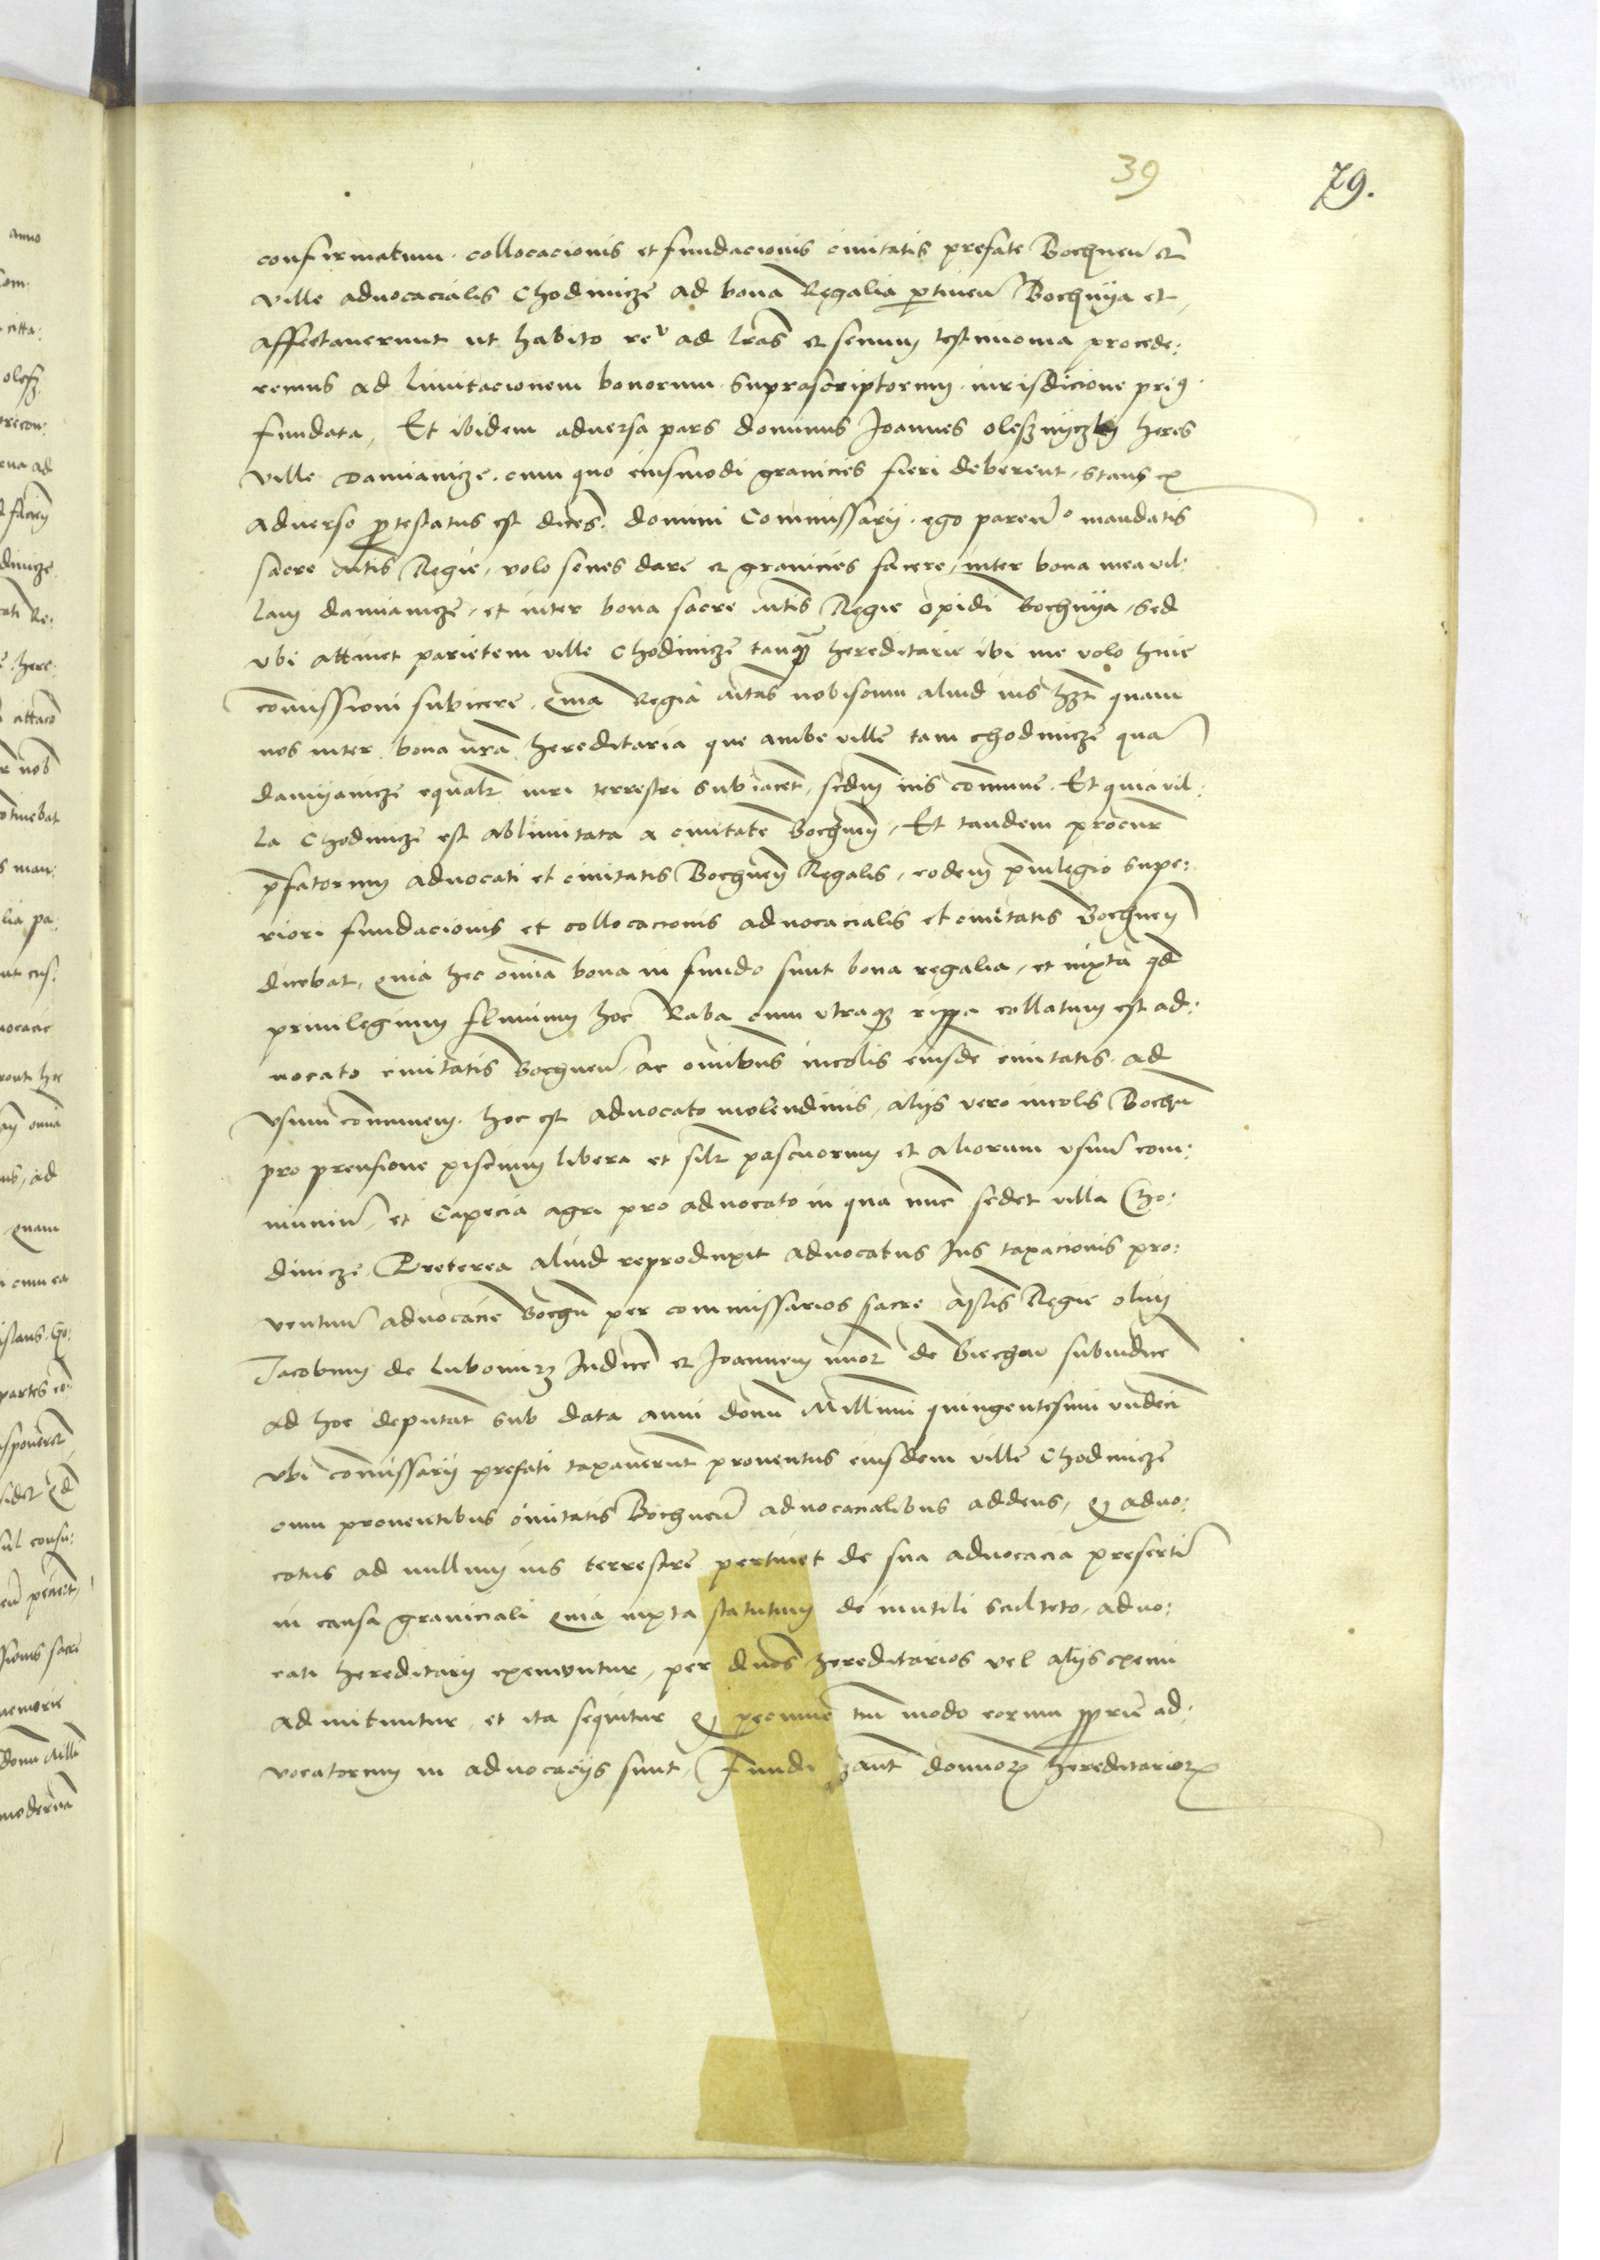 39
79.
confirmatum collocacionis et fundacionis civitatis prefate Bochnen et
ville advocacialis Chodenicze ad bona Regalia ptinen Bochnya et
affectaverunt ut habito re ad lras et senum testimonia procede:
remus ad limitacionem bonorum suprascriptorum iurisdicione pri9
fundata, Et ibidem adversa pars dominus Joannes olesznyczky heres
ville Damianicze cum quo eiusmodi granicies fieri deberent, stans ex
adverso ptestatus est dices. domini Commissarij ego paren mandatis
sacre Mtis Regie, volo senes dare et granicies facere, inter bona mea vil:
lam damianicze, et inter bona sacre Mtis Regie opidi Bochnya, sed
vbi attinet parietem ville Chodenicze tanq hereditarie ibi me volo huic
comissioni subicere, quia Regia Mtas nobiscum aliud ius hzt quam
nos inter bona nra hereditaria que ambe ville tam chodenicze qua
damyanicze equalr iuri terrestri subiacet, sedm ius commune. Et quia vil:
la Chodenicze est ablimitata a civitate Bochnen, Et tandem procur
pfatorum advocati et civitatis Bochnen Regalis, eodem pvilegio supe:
riori fundacionis et collocacionis advocacialis et civitatis Bochnen
dicebat, quia hec omia bona in fundo sunt bona regalia, et iuxta qd
privilegium fluvium hoc Raba cum vtraq rippa collatum est ad:
vocato civitatis Bochnen, ac omibus incolis eiusde civitatis ad
vsum communem. hoc est advocato molendinis, alijs vero incolis Bochn
pro prensione piscium libera et silr pascuorum et aliorum vsuu com:
muniu, et Capecia agri pro advocato in qua nuc sedet villa Cho:
dinicze. Preterea aliud reproduxit advocatus Ius taxacionis pro:
ventuu advocacie Bochn per commissarios sacre Mtis Regie olim
Jacobum de Lubomirz Iudice et Joannem de subiudice
ad hoc deputat sub data anni domi Millimi quingentesimi vndeci
vbi comissarij prefati taxaverunt proventus eiusdem ville Chodenicze
cum proventibus civitatis Bochnen advocacialibus addens, q advo:
catus ad nullum ius terrestre pertinet de sua advocacia preserti
in causa graniciali quia iuxta statutum de inutili sculteto, advo:
cati hereditarij exemuntur, per duos hereditarios vel alijs exemi
admittuntur, et ita sequitur q pecunie tm modo eorum pprie ad:
vocatorum in advocacijs sunt, Fundi aut domorz hereditariorz